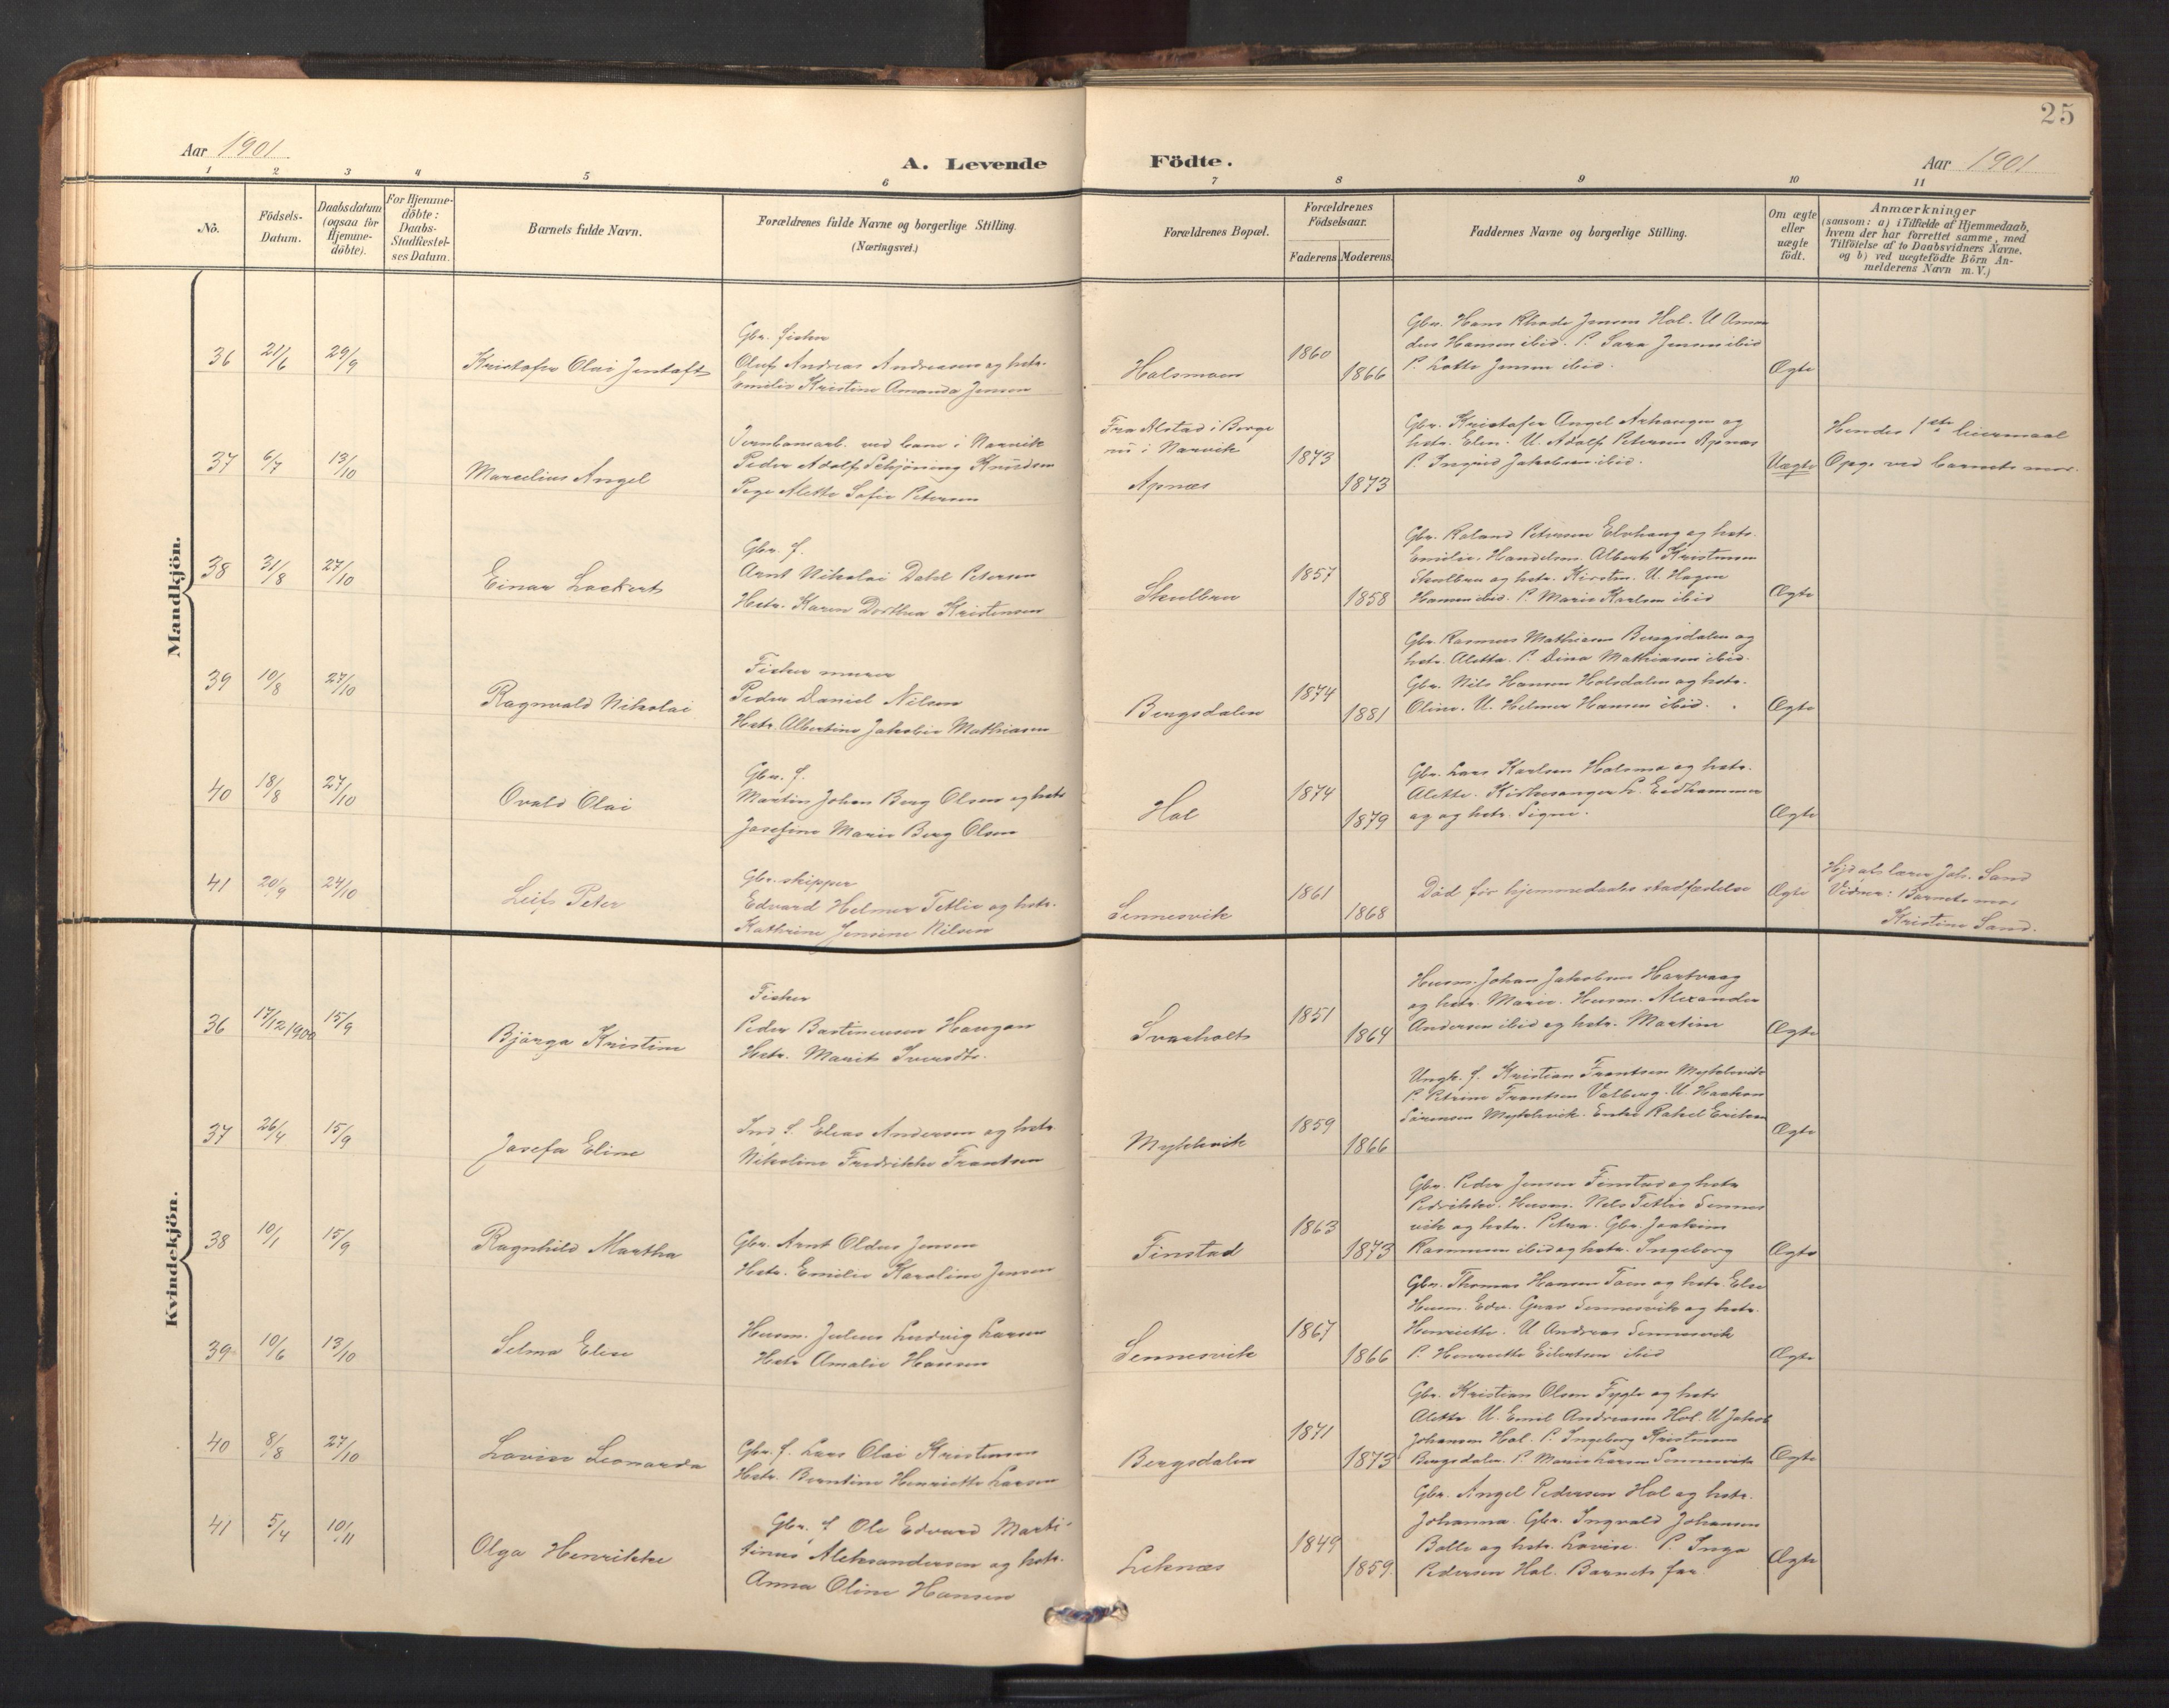 25
Aar 1901
A. Levende
Födte.
Aar 1901
1 2 3 4 5 6 7 8 9 10 11
No.
Födsels-
Datum.
Daabsdatum
(ogsaa för
Hjemme-
döbte).
For Hjemme-
döbte:
Daabs-
Stadfæstel-
ses Datum.
Barnets fulde Navn.
Forældrenes fulde Navne og borgerlige Stilling.
(Næringsvei.)
Forældrenes Bopæl.
Forældrenes
Födselsaar.
Faderens
Moderens
Faddernes Navne og borgerlige Stilling.
Om ægte
eller
uægte
födt.
Anmærkninger
(saasom: a) i Tilfælde af Hjemmedaab,
hvem der har forrettet samme, med
Tilföielse af to Daabsvidners Navne,
og b) ved uægtefödte Börn An-
melderens Navn m. V.)
Mandkjön.
36 21/6 29/9
Kristofer Olai Jentoft
Gbr. fisker
Oluf Andreas Andreasen og hstr.
Emilie Kristine Amanda Jensen
Holsmoen
1860
1866
Gbr. Hans Rhode Jensen Hol. U. Aman
dus Hansen ibid. P. Sara Jensen ibid
P. Lotte Jensen ibid.
Ægte
37 6/7 13/10
Marcelius Angel
Jernbanearb. ved bane i Narvik
Peder Adolf Schjöning Knudsen
Pige Alette Sofie Petersen
Fra Alstad i Borge
nu i Narvik
Apnæs
1873
1873
Gbr. Kristofer Angel Arhaugen og
hstr. Elen. U. Adolf Petersen Apnæs
P. Ingrid Jakobsen ibid.
Uægte
Hendes 1ste leiermaal
Opg. ved barnets mor.
38 31/8 27/10
Einar Lockert
Gbr. f.
Arnt Nikolai Dahl Petersen
Hstr. Karen Dorthea Kristensen
Skulbru
1857
1858
Gbr. Roland Petersen Elvhaug og hstr.
Emilie. Handelsm. Albert Kristensen
Skulbru og hstr. Kirstin. U. Hagen
Hansen ibid. P. Marie Karlsen ibid
Ægte
39 10/8 27/10
Ragnvald Nikolai
Fisker murer
Peder Daniel Nilsen
Hstr. Albertine Jakobie Mathiasen
Bergsdalen
1874
1881
Gbr. Rasmus Mathiasen Bergsdalen og
hstr. Aletta. P. Dina Mathiasen ibid.
Gbr. Nils Hansen Holsdalen og hstr.
Oline. U. Helmer Hansen ibid.
Ægte
40 18/8 27/10
Ovald Olai
Gbr. f.
Martin Johan Berg Olsen og hstr
Josefine Marie Berg Olsen
Hol
1874
1879
Gbr. Lars Karlsen Holsmo og hstr.
Alette. Kirkesanger L. Eidhammer
og og hstr. Signe.
Ægte
41 20/9 24/10
Leif Peter
Gbr. skipper
Edvard Helmer Tetlie og hstr.
Kathrine Jensine Nilsen
Sennesvik
1861
1868
Død før hjemmedaabs stadfæstelse
Ægte
Hjd af lærer Joh. Sand
Vidner: Barnets mor
Kristine Sand.
Kvindekjön.
36 17/12 1900 15/9
Bjärga Kristine
Fisker
Peder Bastineusen Haugan
Hstr. Marit Iversdtr.
Svarholt
1851
1864
Husm. Johan Jakobsen Hartvaag
og hstr. Marie. Husm. Alexander
Andersen ibid og hstr. Martine
Ægte
37 26/4 15/9
Josefa Eline
Ind. f. Elias Andersen og hstr
Nikoline Fredrikke Frantsen
Myklevik
1859
1866
Ungk. f. Kristian Frantsen Myklevik
P. Petrine Frantsen Valberg. U. Haakon
Sörensen Myklevik. Enke Rakel Eriksen
Ægte
38 10/1 15/9
Ragnhild Martha
Gbr. Arnt Oldus Jensen
Hstr. Emilie Karoline Jensen
Finstad
1863
1873
Gbr. Peder Jensen Finstad og hstr
Pedrikke. Husm. Nils Tetlie Sennes
vik og hstr. Petra. Gbr. Joakim
Rasmusen ibid og hstr. Ingeborg
Ægte
39 10/6 13/10
Selma Elise
Husm. Julius Ludvig Larsen
Hstr Amalie Hansen
Sennesvik
1867
1866
Gbr. Thomas Hansen Toen og hstr. Else
Husm. Edv. Grav Sennesvik og hstr.
Henriette. U Andreas Sennesvik
P. Henriette Eilertsen ibid
Ægte
40 8/8 27/10
Lovise Leonarda
Gbr. f. Lars Olai Kristensen
Hstr. Berntine Henriette Larsen
Bergsdalen
1871
1873
Gbr. Kristian Olsen Fygle og hstr
Alette. U. Emil Andreasen Hol. U Jakob
Johansen Hol. P. Ingeborg Kristensen
Bergsdalen. P. Marie Larsen Sennesvik
Ægte
41 5/4 10/11
Olga Henrikke
Gbr. f Ole Edvard Marti-
tinus Aleksandersen og hstr.
Anna Oline Hansen
Leknæs
1849
1859
Gbr. Angel Pedersen Hol og hstr.
Johanna. Gbr. Ingvald Johansen
Bolle og hstr. Lovise. P. Inga
Pedersen Hol. Barnets far.
Ægte